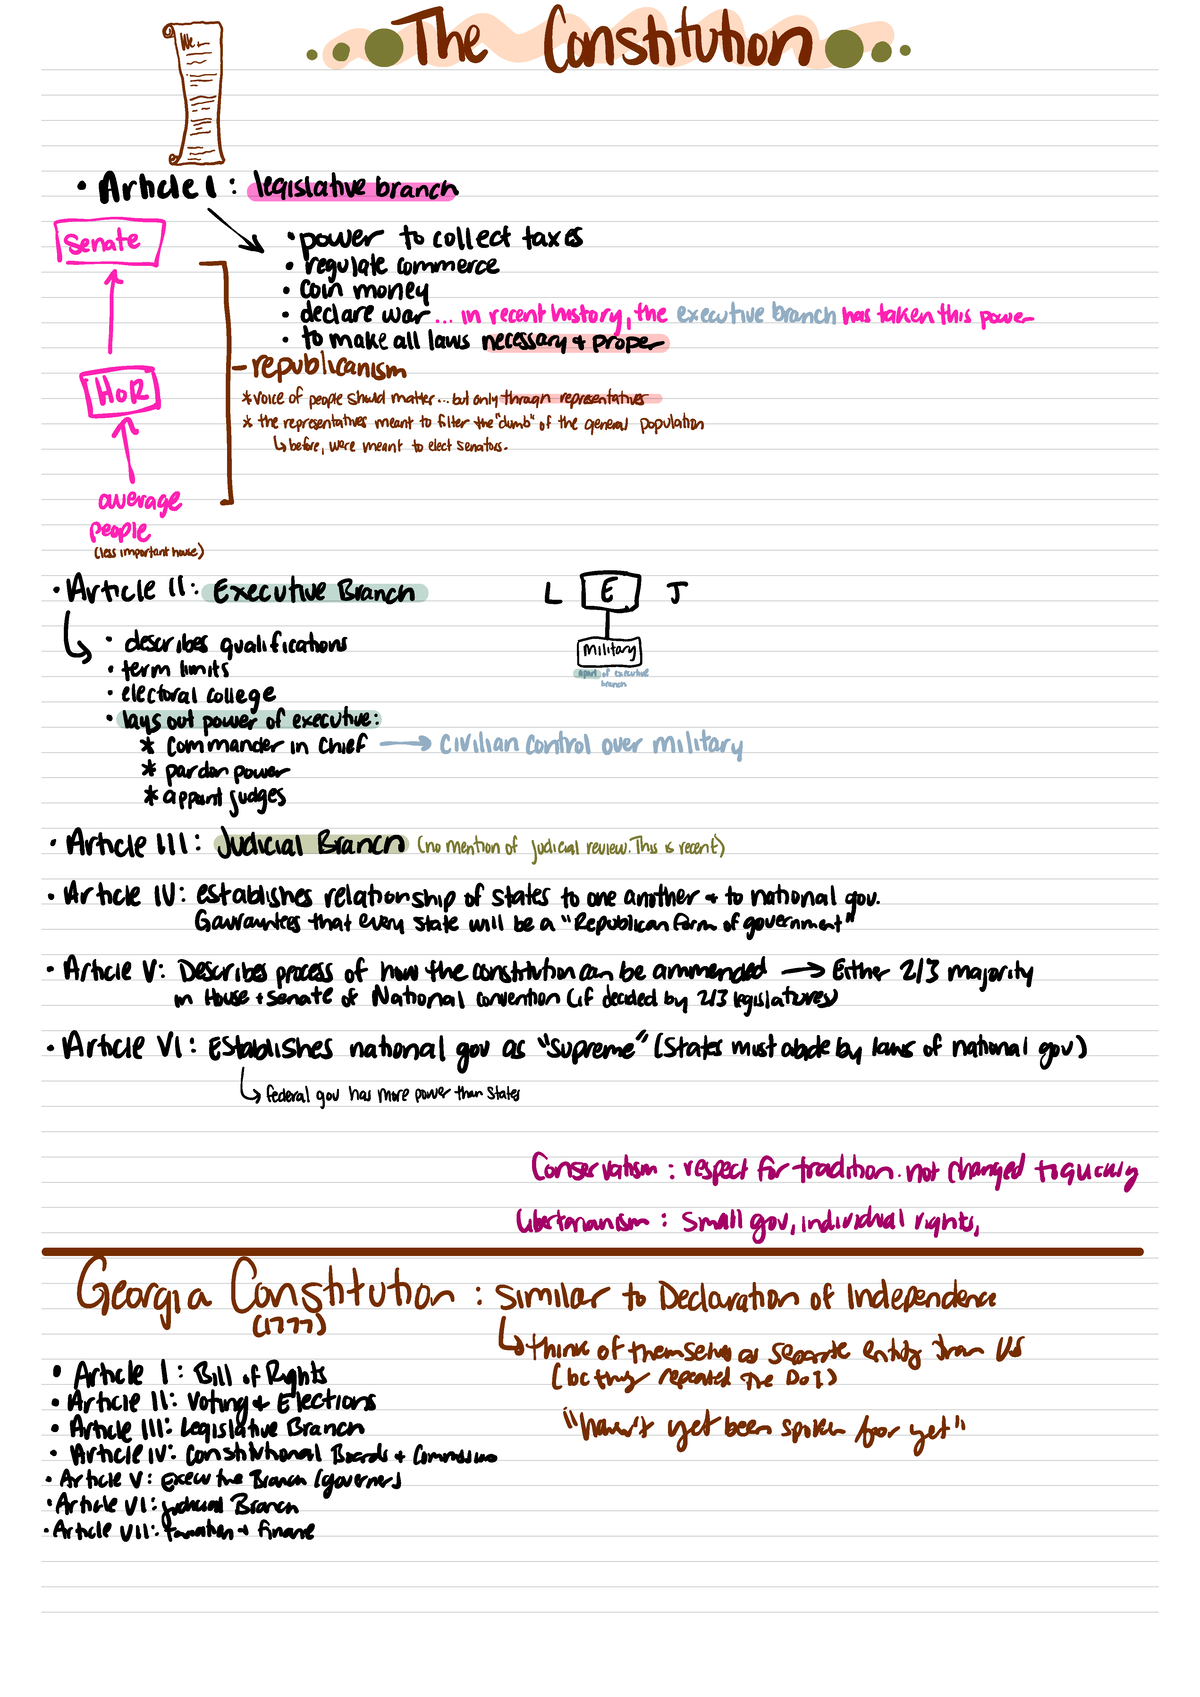 The Constitution
We
• Article I: legislative branch
Senate
• power to collect taxes
• regulate commerce
• coin money
• declare war ... in recent history, the executive branch has taken this power
• to make all laws necessary + proper
- republicanism
HoR
* voice of people should matter... but only through representatives
* the representatives meant to filter the "dumb" of the general population
↳ before, were meant to elect senators.
average
people
(less important house)
• Article II: Executive Branch
L E J
Military
apart of executive
branch
• describes qualifications
• term limits
• electoral college
• lays out power of executive:
* Commander in Chief → Civilian control over military
* pardon power
* appoint judges
• Article III: Judicial Branch (no mention of judicial review. This is recent)
• Article IV: establishes relationship of states to one another + to national gov.
Gaurantees that every state will be a "Republican form of government"
• Article V: Describes process of how the constitution can be ammended → Either 2/3 majority
in House + Senate of National convention (if decided by 2/3 legislatures)
• Article VI: Establishes national gov as "supreme" (States must abide by laws of national gov)
↳ federal gov has more power than states
Conservatism: respect for tradition. not changed to quickly
Libertarianism: Small gov, individual rights,
Georgia Constitution: similar to Declaration of Independence
(1777)
↳ think of themselves as separate entity than US
(bc they repeated the DoI)
"haven't yet been spoken for yet"
• Article I: Bill of Rights
• Article II: Voting + Elections
• Article III: Legislative Branch
• Article IV: Constitutional Boards + Commissions
• Article V: Executive Branch (governer)
• Article VI: Judicial Branch
• Article VII: Taxation + Finance